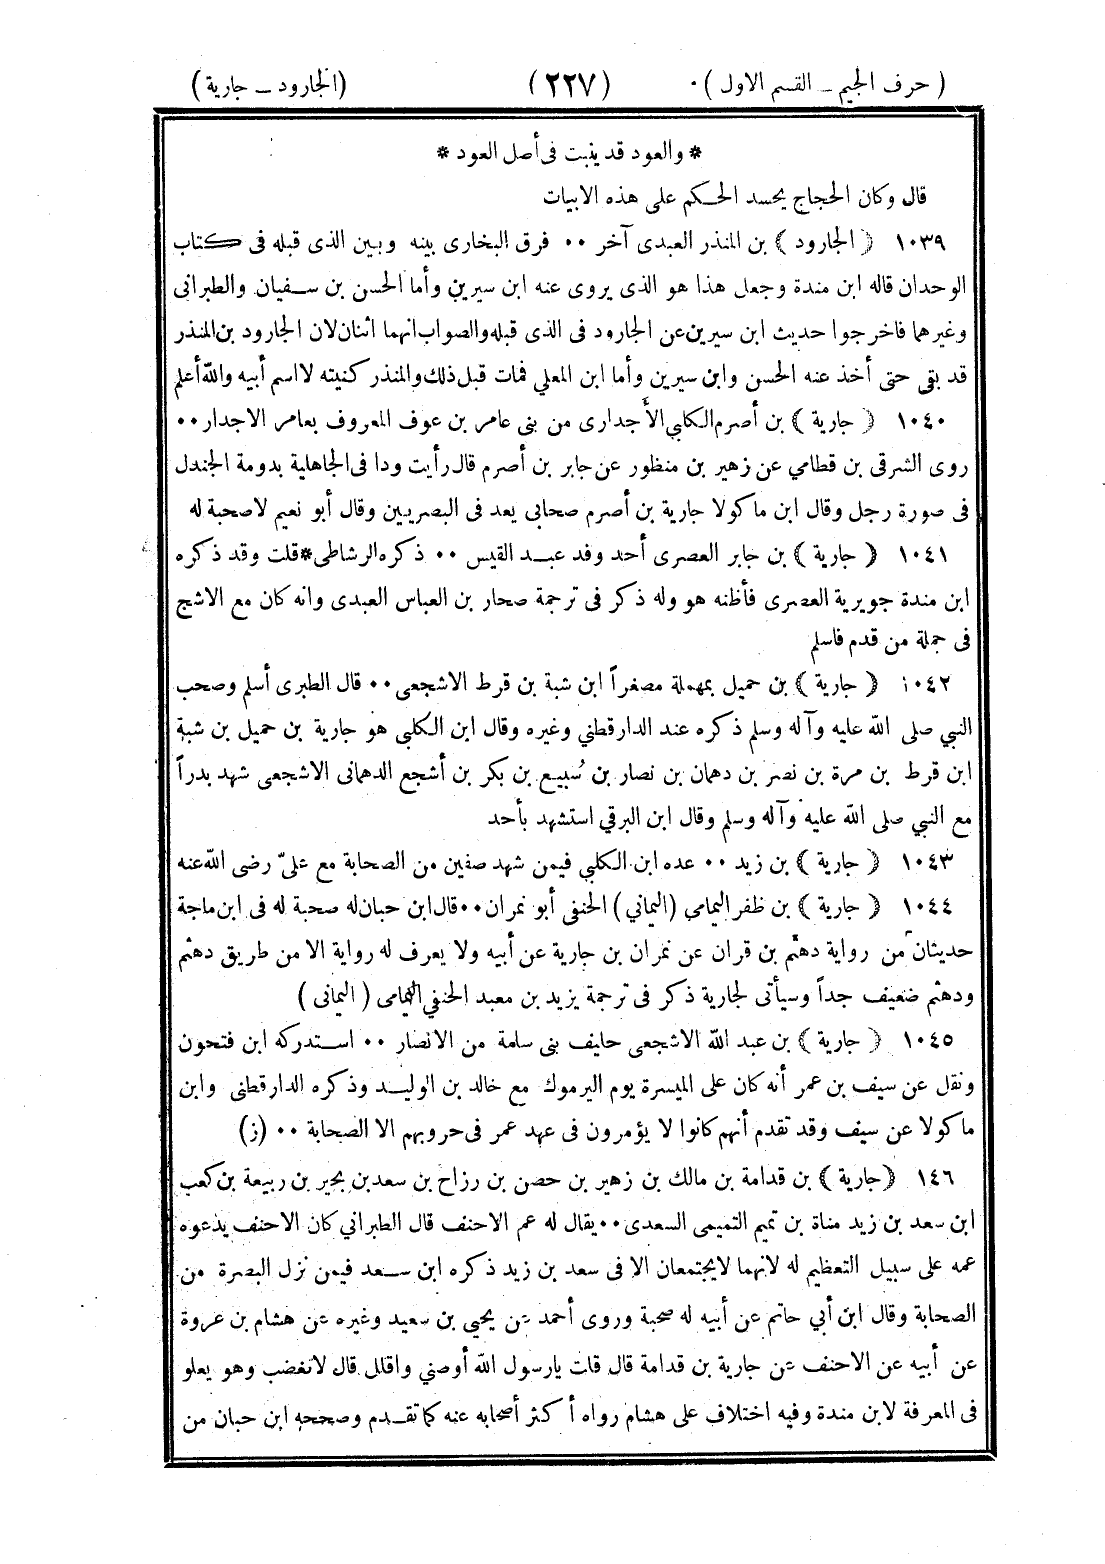 ( حرف الجيم ــ القسم الاول ) ٠ (٢٢٧) (الجارود ــ جارية)
* والعود قد ينبت فى أصل العود *
قال وكان الحجاج يحسد الحكم على هذه الابيات
١٠٣٩ ( الجارود ) بن المنذر العبدى آخر ٠٠ فرق البخارى بينه وبين الذى قبله فى كتاب
الوحدان قاله ابن مندة وجعل هذا هو الذى يروى عنه ابن سيرين وأما الحسن بن سفيان والطبرانى
وغيرهما فاخرجوا حديث ابن سيرين عن الجارود فى الذى قبله والصواب انهما اثنان لان الجارود بن المنذر
قد بقى حتى أخذ عنه الحسن وابن سيرين وأما ابن المعلي فمات قبل ذلك والمنذر كنيته لا اسم أبيه والله أعلم
١٠٤٠ ( جارية ) بن أصرم الكلبي الأجدارى من بنى عامر بن عوف المعروف بعامر الاجدار ٠٠
روى الشرقى بن قطامي عن زهير بن منظور عن جابر بن أصرم قال رأيت ودا فى الجاهلية بدومة الجندل
فى صورة رجل وقال ابن ماكولا جارية بن أصرم صحابى يعد فى البصريين وقال أبو نعيم لا صحبة له
١٠٤١ ( جارية ) بن جابر العصرى أحد وفد عبد القيس ٠٠ ذكره الرشاطى * قلت وقد ذكره
ابن مندة جويرية العصرى فأظنه هو وله ذكر فى ترجمة صحار بن العباس العبدى وانه كان مع الاشج
فى جملة من قدم فاسلم
١٠٤٢ ( جارية ) بن حميل بمهملة مصغراً ابن شبة بن قرط الاشجعى ٠٠ قال الطبرى أسلم وصحب
النبي صلى الله عليه وآله وسلم ذكره عند الدارقطني وغيره وقال ابن الكلبى هو جارية بن حميل بن شبة
ابن قرط بن مرة بن نصر بن دهمان بن نصار بن سُبيع بن بكر بن أشجع الدهمانى الاشجعى شهد بدراً
مع النبي صلى الله عليه وآله وسلم وقال ابن البرقي استشهد بأحد
١٠٤٣ ( جارية ) بن زيد ٠٠ عده ابن الكلبي فيمن شهد صفين من الصحابة مع علىّ رضى الله عنه
١٠٤٤ ( جارية ) بن ظفر اليمامى (اليماني) الحنفى أبو نمران ٠٠ قال ابن حبان له صحبة له فى ابن ماجة
حديثان من رواية دهثم بن قران عن نمران بن جارية عن أبيه ولا يعرف له رواية الا من طريق دهثم
ودهثم ضعيف جداً وسيأتى لجارية ذكر فى ترجمة يزيد بن معبد الحنفي اليمامى ( اليمانى )
١٠٤٥ ( جارية ) بن عبد الله الاشجعى حليف بنى سلمة من الانصار ٠٠ استدركه ابن فتحون
ونقل عن سيف بن عمر أنه كان على الميسرة يوم اليرموك مع خالد بن الوليد وذكره الدارقطنى وابن
ماكولا عن سيف وقد تقدم أنهم كانوا لا يؤمرون فى عهد عمر فى حروبهم الا الصحابة ٠٠ (ز)
١٤٦ (جارية) بن قدامة بن مالك بن زهير بن حصن بن رزاح بن سعد بن بجير بن ربيعة بن كعب
ابن سعد بن زيد مناة بن تميم التميمى السعدى ٠٠ يقال له عم الاحنف قال الطبراني كان الاحنف يدعوه
عمه على سبيل التعظيم له لانهما لا يجتمعان الا فى سعد بن زيد ذكره ابن سعد فيمن نزل البصرة من
الصحابة وقال ابن أبي حاتم عن أبيه له صحبة وروى أحمد عن يحيى بن سعيد وغيره عن هشام بن عروة
عن أبيه عن الاحنف عن جارية بن قدامة قال قلت يارسول الله أوصني واقلل قال لاتغضب وهو يعلو
فى المعرفة لابن مندة وفيه اختلاف على هشام رواه أكثر أصحابه عنه كما تقدم وصححه ابن حبان من